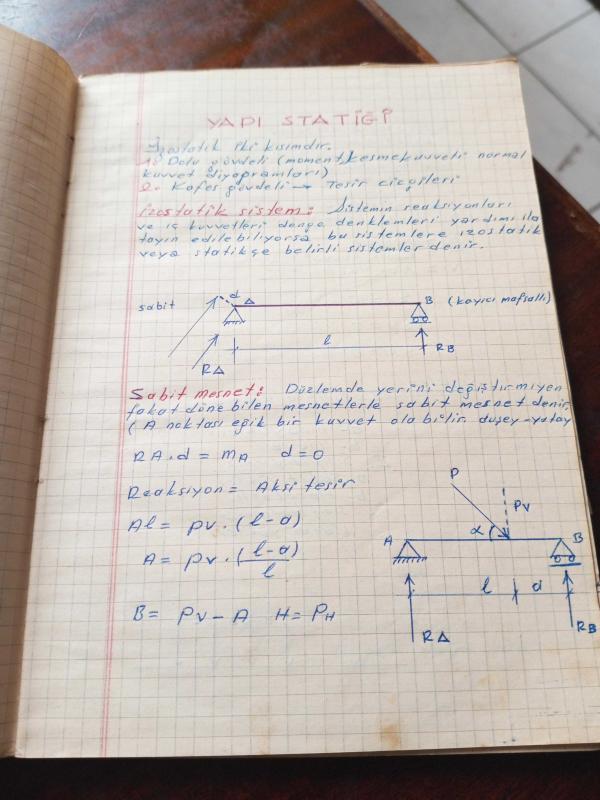 YAPI STATİĞİ
İzostatik iki kısımdır.
1. Dolu gövdeli (moment, kesme kuvveti normal
kuvvet diyagramları)
2. Kafes gövdeli → Tesir çizgileri
İzostatik sistem: Sistemin reaksiyonları
ve iç kuvvetleri denge denklemleri yardımı ile
tayin edilebiliyorsa bu sistemlere izostatik
veya statikçe belirli sistemler denir.
sabit d A B (kayıcı mafsallı)
l
RA RB
Sabit mesnet: Düzlemde yerini değiştirmiyen
fakat dönebilen mesnetlerle sabit mesnet denir.
(A noktası eğik bir kuvvet olabilir. düşey-yatay
RA.d = mA d=0
Reaksiyon = Aksi tesir
Al = pv.(l-a)
A = pv.(l-a)/l
B = Pv-A H = PH
P
Pv
A α B
l a
RA RB